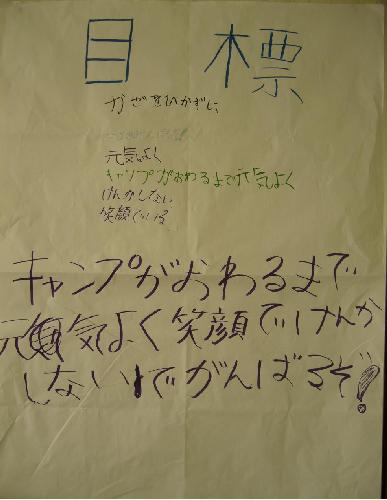 目標
かぜをひかずに
元気よく
キャンプがおわるまで元気よく
けんかしない
笑顔でいる
キャンプがおわるまで
元気よく笑顔でけんか
しないでがんばるぞ!